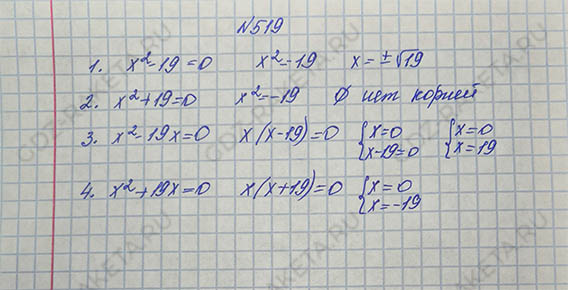 №519
1. x²-19=0 x²-19 x=±√19
2. x²+19=0 x²=-19 Ø нет корней
3. x²-19x=0 x(x-19)=0 {x=0 x-19=0 {x=0 x=19
4. x²+19x=0 x(x+19)=0 {x=0 x=-19